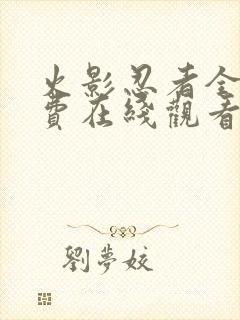 火影忍者全
費在綫觀看
劉夢姣